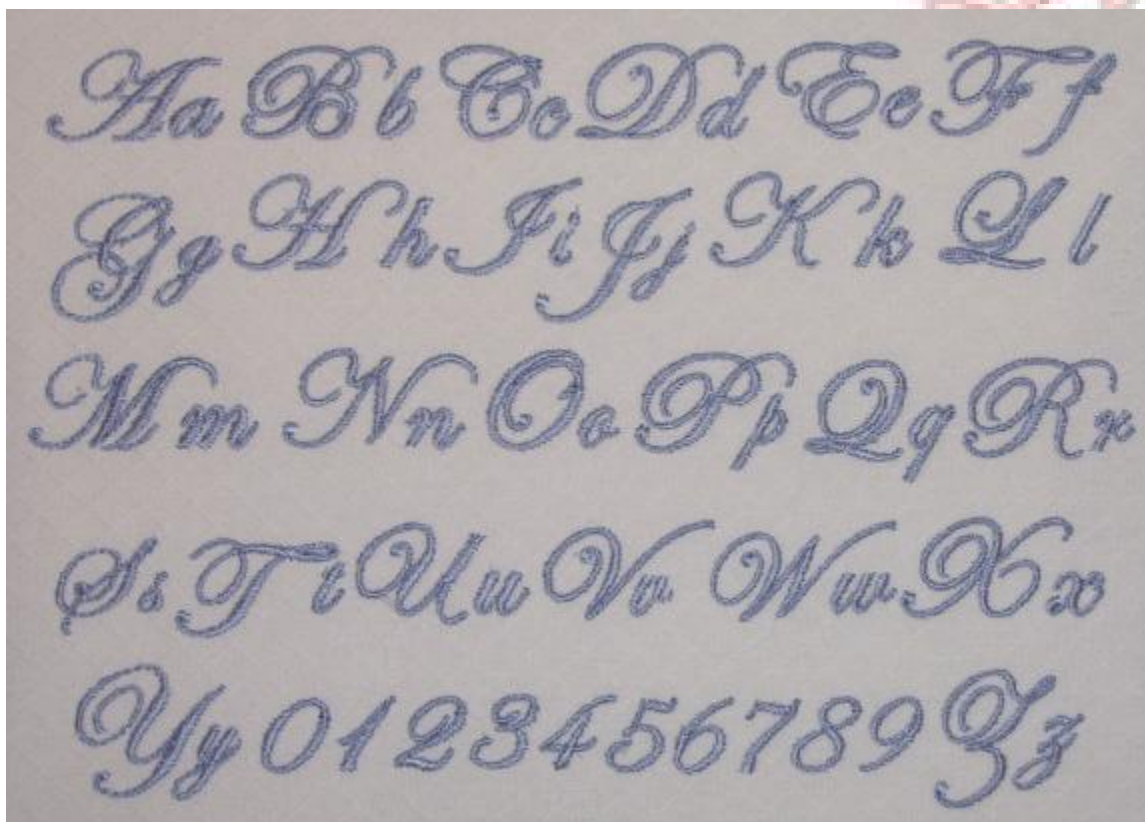 Aa Bb Cc Dd Ee Ff
Gg Hh Ii Jj Kk Ll
Mm Nn Oo Pp Qq Rr
Ss Tt Uu Vv Ww Xx
Yy 0123456789 Zz